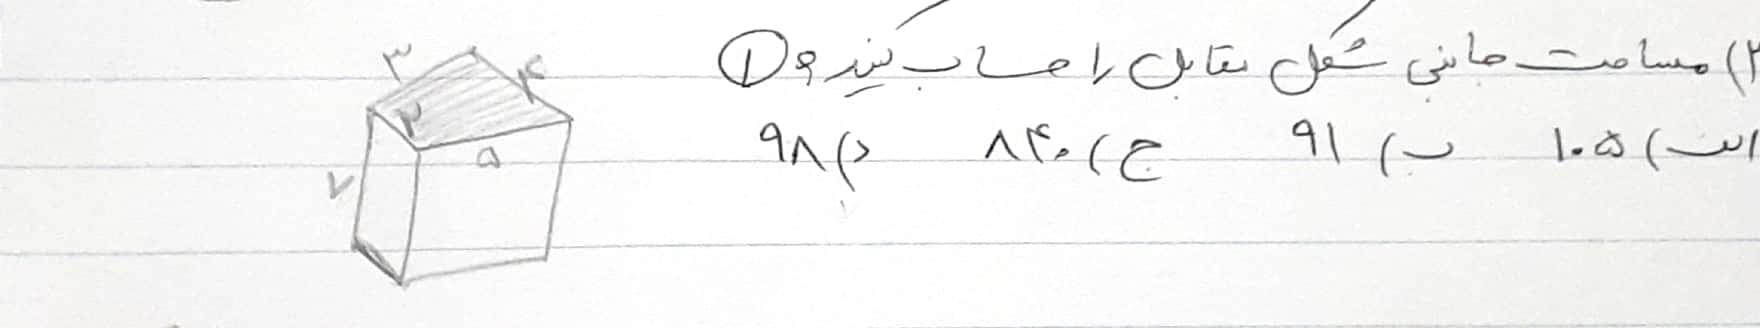 ۲) مساحت جانبی شکل مقابل را حساب کنید و ①
الف) ۱۰۵ ب) ۹۱ ج) ۸۴۰ د) ۹۸
۳ ۴
۲
۵
۷